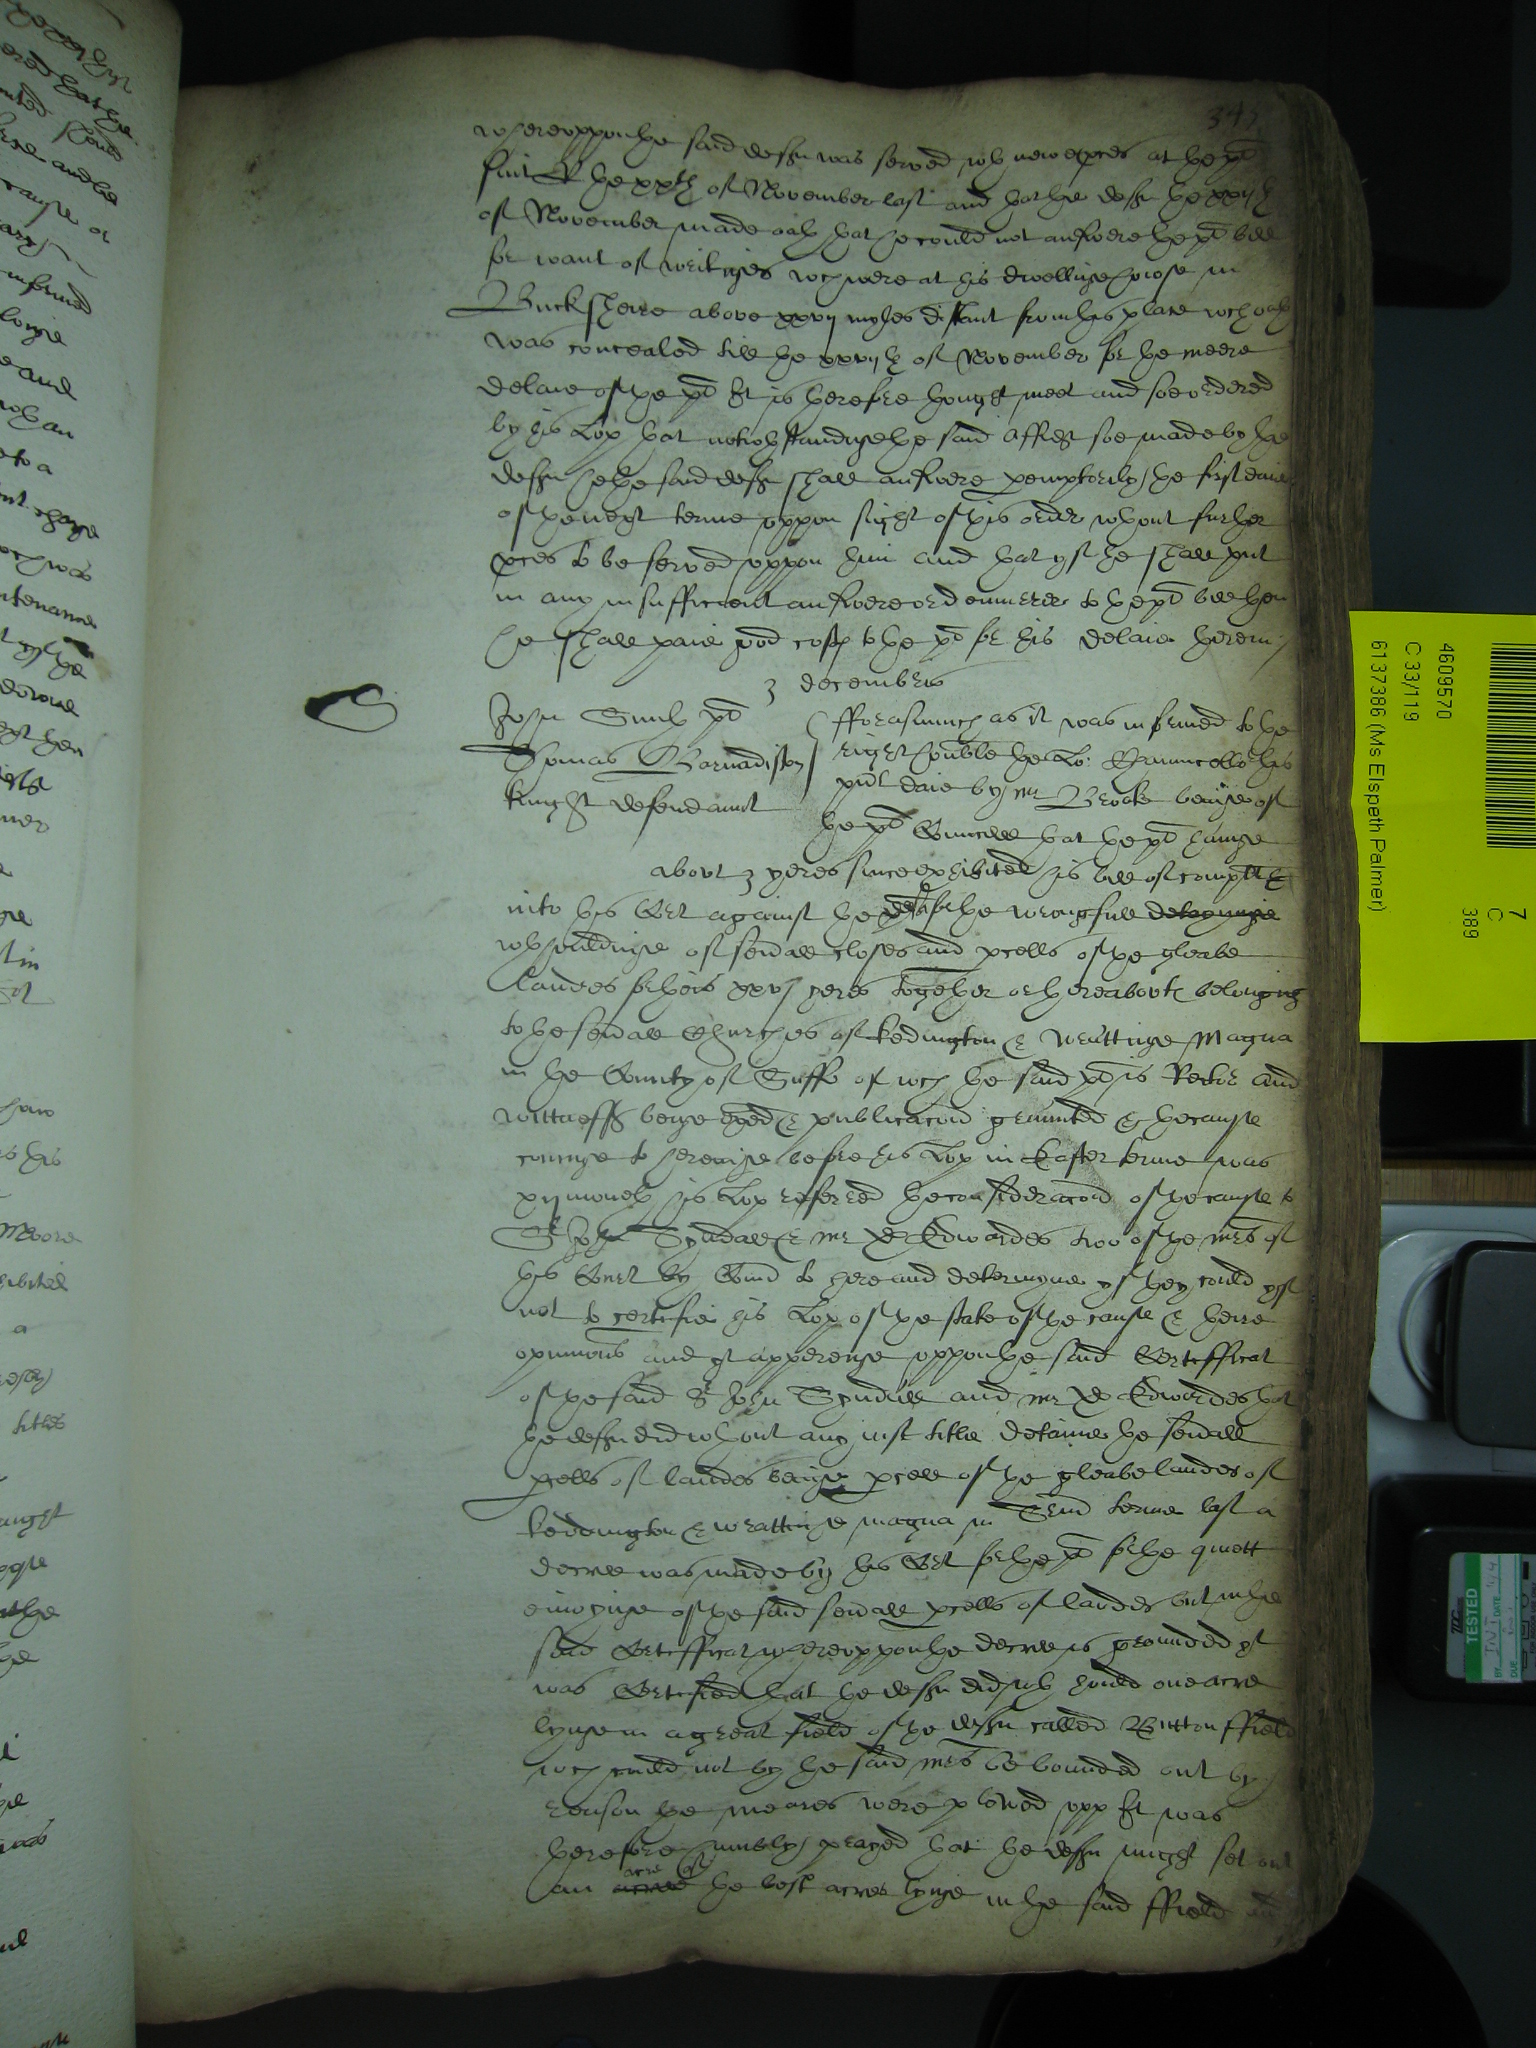 347
whereuppon the said defte was served wth new proces at the plt
suit the xxth of November last and that the deft the xxijth
of November made oath that he could not answere the plt bill
for want of writinges wch were at his dwellinge howse in
Bucksheire above xxvij myles distant from this place wch oath
was concealed till the xxvijth of November for the meere
delaie of the plt It is therefore thought meet and soe ordered
by his Lop that notwthstandinge the said affidt soe made by the
deft he the said deft shall answere peremptorily the first daie
of the next terme uppon sight of this order wthout further
proces to be served uppon him and that yf he shall put
in any insufficient answere or demurrer to the plt bill then
he shall paie good costs to the plt for his delaie herein
3 decembris
John Smith plt
Thomas Barnadiston
knight defendaunt
fforasmuch as it was informed to the
right honble the Lo: Chauncellor this
pnt daie by mr Brocke beinge of
the plt Councell that the plt havinge
about 3 yeres since exhibited his bill of complt
into this Cort against the deft for the wrongfull detayninge
wthhouldinge of severall closes and pcells of the gleabe
landes for theis xxvj yeres together or thereabouts belonging
to the severall Churches of Kedington & Wrattinge Magna
in the County of Suff of wch the said plt is Rector and
wittnesses beinge exed & publicacion graunted & the cause
cominge to hearinge before his Lop in Easter terme was
xij moneth his Lop referred the consideracion of the cause to
Sr John Tyndall & mr D Edwardes two of the mrs of
this Court by Consent to heare and determyne yf they could yf
not to certefie his Lop of the state of the cause & theire
opinions and yt apperinge uppon the said Certifficat
of the said Sr John Tyndall and mr D Edwardes that
the deft did wthout any just title detaine the severall
pcells of landes beinge pcell of the gleabe landes of
Keddington & Wrattinge magna in Trin terme last a
decree was made by this Cort for the plt for the quiett
enioyinge of the said severall pcells of landes but in the
said Certifficat whereuppon the decree is grounded yt
was Certefied that the deft did wthhould one acre
lyinge in a great field of the deft called Button ffield
wch could not by the said mrs be bounded out by
reason the meares were plowed upp It was
therefore humbly prayed that the deft might set out
an acre of the best acres lyinge in the said ffield and
4609570
C 33/119
6137386 (Ms Elspeth Palmer)
7
C
389
TESTED
BY
DATE
DUE